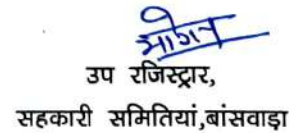 उप रजिस्ट्रार,
सहकारी समितियां,बांसवाड़ा